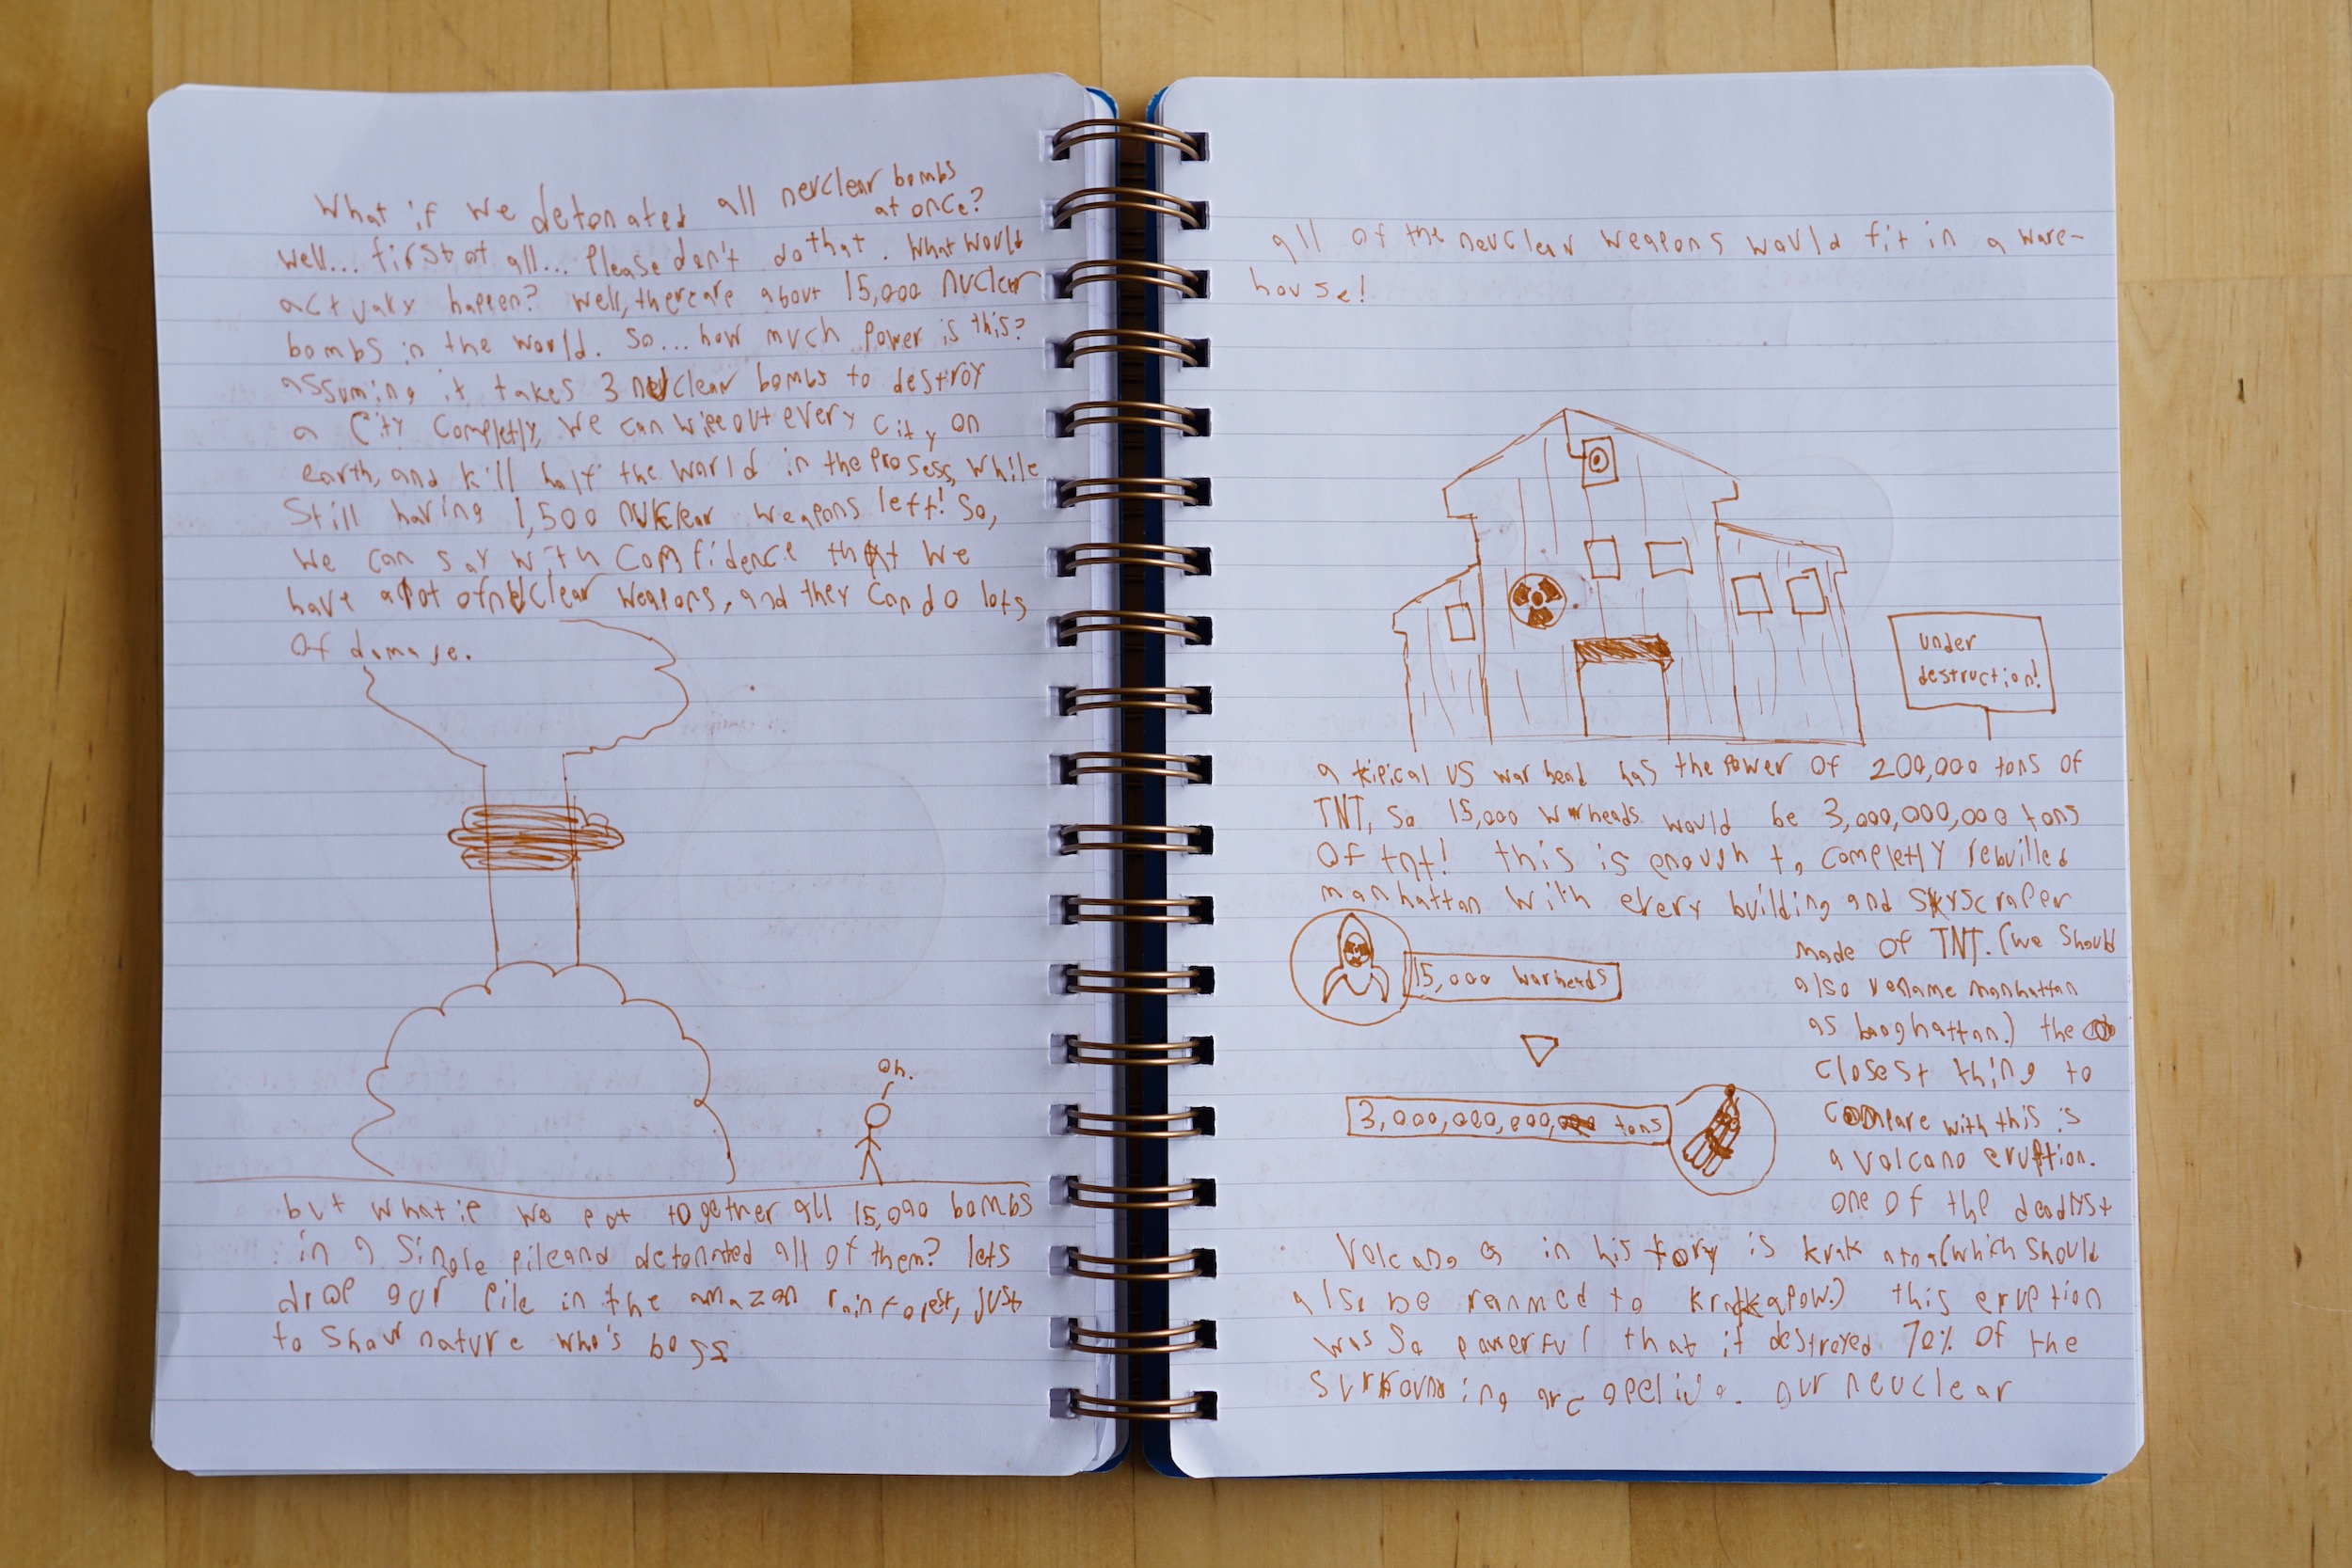 What if we detonated all neuclear bombs
at once?
Well... first of all... Please don't do that. What would
actualy happen? Well, there are about 15,000 nuclear
bombs in the world. So... how much power is this?
assuming it takes 3 neuclear bombs to destroy
a City Completly, We can wipe out every city on
earth, and kill half the world in the prosess, while
Still having 1,500 nuklear weapons left! So,
We can say with Comfidence that we
have a lot of nuclear weapons, and they can do lots
Of damage.
oh.
but what if we put together all 15,000 bombs
in a Single pile and detonated all of them? lets
drop our pile in the amazon rainforest, just
to show nature who's boss
all of the neuclear weapons would fit in a ware-
house!
under
destruction!
a tipical US warhead has the power of 200,000 tons of
TNT, So 15,000 warheads would be 3,000,000,000 tons
Of tnt! this is enough to completly rebuilled
manhattan with every building and skyscraper
made of TNT. (we Should
also rename manhattan
as boghattan.) the
closest thing to
compare with this is
a volcano eruption.
one of the deadlyst
15,000 warheads
3,000,000,000, tons
Volcano s in history is krakatoa (which should
also be renmed to krakapow.) this eruption
was So powerful that it destroyed 70% of the
surrounding our neuclear